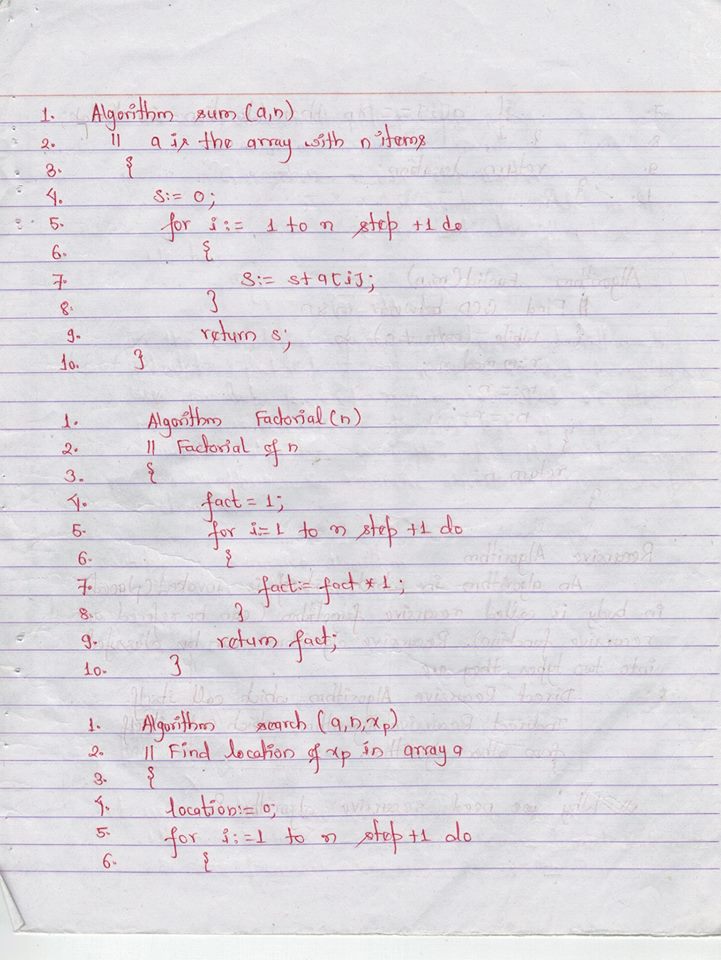 1. Algorithm sum(a,n)
2. // a is the array with n items
3. {
4. s:= 0;
5. for i:= 1 to n step +1 do
6. {
7. s:= s+a[i];
8. }
9. return s;
10. }
1. Algorithm Factorial(n)
2. // Factorial of n
3. {
4. fact = 1;
5. for i=1 to n step +1 do
6. {
7. fact:= fact * 1;
8. }
9. return fact;
10. }
1. Algorithm search (a,n,xp)
2. // Find location of xp in array a
3. {
4. location:= 0;
5. for i:=1 to n step +1 do
6. {